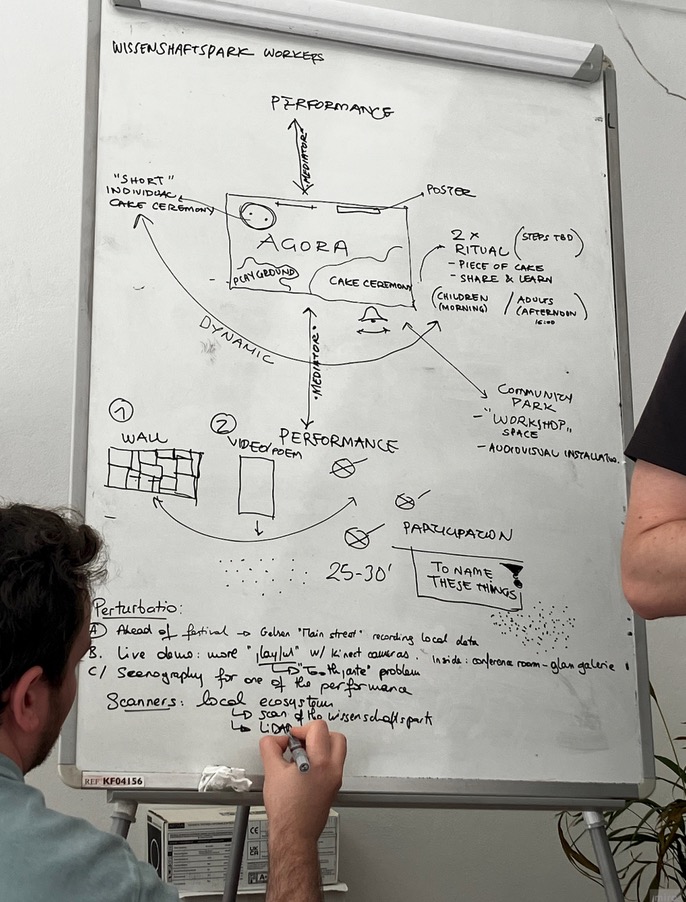 WISSENSHAFTSPARK WORKERS
PERFORMANCE
"MEDIATOR"
"SHORT"
INDIVIDUAL
CAKE CEREMONY
POSTER
AGORA
PLAYGROUND
CAKE CEREMONY
2x (STEPS TBD)
RITUAL
- PIECE OF CAKE
- SHARE & LEARN
(CHILDREN / ADULTS
(MORNING) (AFTERNOON)
16:00
DYNAMIC
"MEDIATOR"
COMMUNITY
PARK
- "WORKSHOP"
SPACE
- AUDIOVISUAL
1
WALL
2
VIDEO/POEM
PERFORMANCE
PARTICIPATION
25-30'
TO NAME
THESE THINGS
Perturbatio:
A) Ahead of festival → Gelsen "Main street" recording local data
B. Live demo: more "playful" w/ Kinect cameras. Inside: conference room - glam galerie
problem
C/ Scenography for one of the performance
Scanners: local ecosystem
↳ scan of the wissenschaftspark
↳ LiDAR
REF KF04156
CE
UK
CA